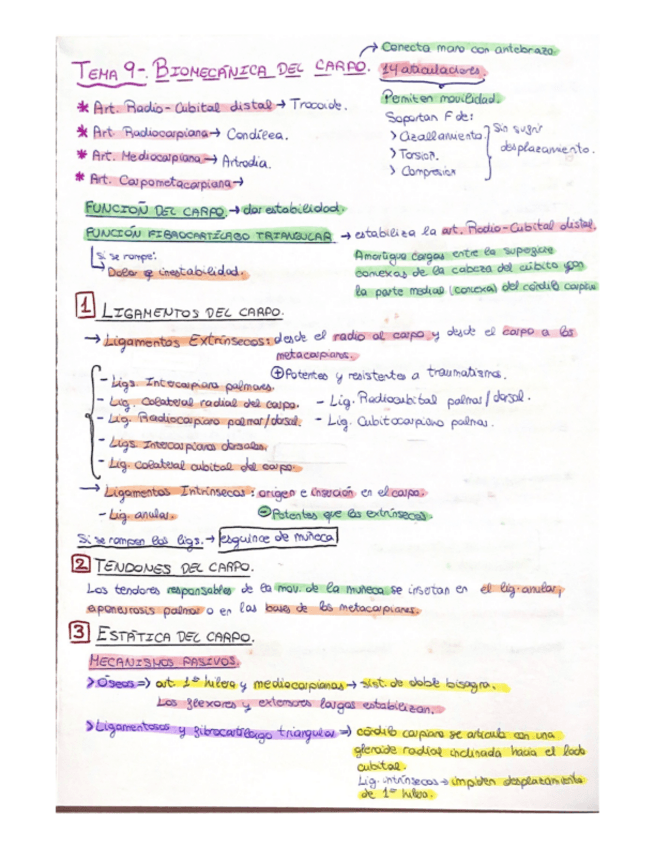 Conecta mano con antebrazo.
TEMA 9-. BIOMECÁNICA DEL CARPO. 14 articulaciones.
Permiten movilidad.
* Art. Radio-Cubital distal → Trocoide.
Soportan F de:
* Art. Radiocarpiana → Condílea.
> Cizallamiento.
> Torsión.
> Compresión
Sin sufrir desplazamiento.
* Art. Mediocarpiana → Artrodia.
* Art. Carpometacarpiana →
FUNCIÓN DEL CARPO. → dar estabilidad.
FUNCIÓN FIBROCARTÍLAGO TRIANGULAR → estabiliza la art. Radio-Cubital distal.
Si se rompe:
→ Dolor e inestabilidad.
Amortigua cargas entre la superficie
convexas de la cabeza del cúbito y con
la parte medial (convexa) del cóndilo carpiano
1 LIGAMENTOS DEL CARPO.
→ Ligamentos Extrínsecos: desde el radio al carpo y desde el carpo a los
metacarpianos.
⊕ Potentes y resistentes a traumatismos.
- Ligs. Intercarpiano palmares.
- Lig. Colateral radial del carpo.
- Lig. Radiocubital palmar/dorsal.
- Lig. Radiocarpiano palmar/dorsal.
- Lig. Cubitocarpiano palmar.
- Ligs. Intercarpianos dorsales.
- Lig. Colateral cubital del carpo.
→ Ligamentos Intrínsecos: origen e inserción en el carpo.
- Lig. anular.
⊖ Potentes que los extrínsecos.
Si se rompen los ligs. → esguince de muñeca
2 TENDONES DEL CARPO.
Los tendones responsables de la mov. de la muñeca se insertan en el lig. anular,
aponeurosis palmar o en las bases de los metacarpianos.
3 ESTÁTICA DEL CARPO.
MECANISMOS PASIVOS.
> Óseos => art. 1ª hilera y mediocarpianas → sist. de doble bisagra.
Los flexores y extensores largos estabilizan.
> Ligamentosos y fibrocartílago triangular => cóndilo carpiano se articula con una
glenoide radial inclinada hacia el lado
cubital.
Lig. intrínsecos → impiden desplazamiento
de 1ª hilera.